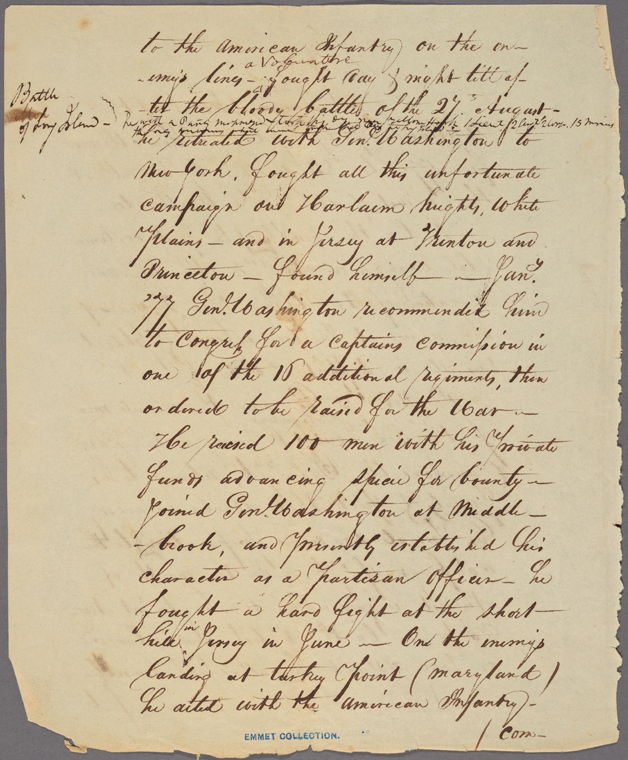 to the American Infantry on the en-
a Voluntere
-emys lines - fought day & night till af-
Battle
of Long Island -
-ter the bloody battle of the 27th August -
he retreated with Genl. Washington to
New York, fought all this unfortunate
campaign on Harlaem heights, White
Plains - and in Jersey at Trenton and
Princeton - found himself - Jany.
77 Genl. Washington recommended him
to Congress for a captains commission in
one of the 16 additional regiments, then
ordered to be raised for the War -
He raised 100 men with his Private
funds advancing specie for bounty -
Joined Genl. Washington at Middle-
-brook, and presently established his
character as a Partizan officer - he
fought a hard fight at the short
hills in Jersey in June - On the enemys
landing at turkey Point (Maryland)
he acted with the American Infantry -
/ com-
EMMET COLLECTION.